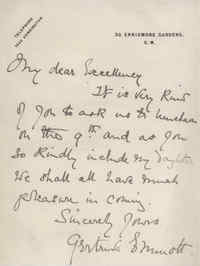 TELEPHONE
KENSINGTON
30 ENNISMORE GARDENS,
S.W.
My dear Excellency
It is very kind
of you to ask us to luncheon
on the 9th and as you
so kindly include my daughter
we shall all have much
pleasure in coming.
Sincerely yours
Gertrude Emmott